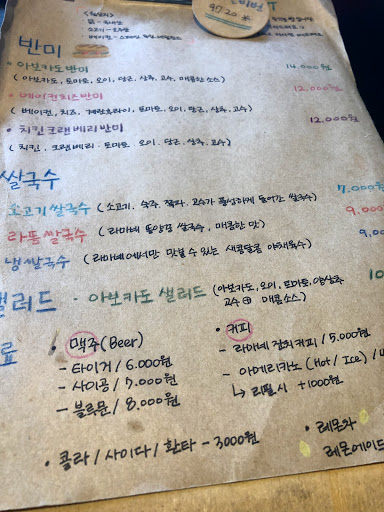 반미
· 아보카도반미 14,000원
( 아보카도, 토마토, 오이, 당근, 상추, 고수, 매콤한소스 )
· 베이컨치즈반미 12,000원
( 베이컨, 치즈, 계란후라이, 토마토, 오이, 당근, 상추, 고수 )
· 치킨크랜베리반미 12,000
( 치킨, 크랜베리, 토마토, 오이, 당근, 상추, 고수 )
쌀국수
소고기쌀국수 ( 소고기, 숙주, 쪽파, 고수가 풍성하게 들어간 쌀국수) 7,000
라똠쌀국수 (라마네 똠양꿍 쌀국수, 매콤한 맛) 9,000
냉쌀국수 (라마네에서만 맛볼 수 있는 새콤달콤 야채육수)
샐러드 · 아보카도 샐러드 (아보카도, 오이, 토마토, 양상추
고수 매콤소스 )
료
· 맥주(Beer)
- 타이거 / 6.000원
- 사이공 / 7.000원
- 블루문 / 8.000원
· 커피
- 라마네 잠최커피 / 5.000원
- 아메리카노 (Hot / Ice) /
↳ 리필시 +1000원
· 콜라 / 사이다 / 환타 - 3000원
· 레몬차
레몬에이드